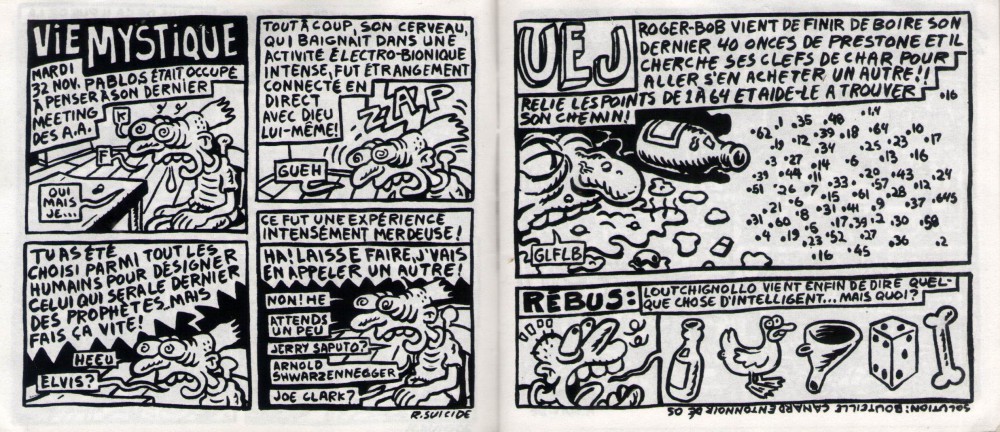 VIE MYSTIQUE
MARDI
32 NOV. PABLOS ÉTAIT OCCUPÉ
À PENSER À SON DERNIER
MEETING
DES A.A.
K
F
QUI
MAIS
JE...
TOUT À COUP, SON CERVEAU,
QUI BAIGNAIT DANS UNE
ACTIVITÉ ÉLECTRO-BIONIQUE
INTENSE, FUT ÉTRANGEMENT
CONNECTÉ EN
DIRECT
AVEC DIEU
LUI-MÊME!
ZZAP
GUEH
TU AS ÉTÉ
CHOISI PARMI TOUT LES
HUMAINS POUR DÉSIGNER
CELUI QUI SERA LE DERNIER
DES PROPHÈTES, MAIS
FAIS ÇA VITE!
HEEU
ELVIS?
CE FUT UNE EXPÉRIENCE
INTENSÉMENT MERDEUSE!
HA! LAISSE FAIRE, J'VAIS
EN APPELER UN AUTRE!
NON! HE
ATTENDS
UN PEU
JERRY SAPUTO?
ARNOLD
SHWARZENNEGGER
JOE CLARK?
R. SUICIDE
UEJ
ROGER-BOB VIENT DE FINIR DE BOIRE SON
DERNIER 40 ONCES DE PRESTONE ET IL
CHERCHE SES CLEFS DE CHAR POUR
ALLER S'EN ACHETER UN AUTRE!!
RELIE LES POINTS DE 1 À 64 ET AIDE-LE A TROUVER
SON CHEMIN!
16
62 1 35 48 14
9 12 39 18 64 23 10 17
34 25
3 27 14 6 13 16
39 44 11 20 43 24
51 26 7 33 57 12
21 6 15 61 28 37 645
31 60 8 31 41 9
4 19 5 17 39 2 30 58
23 52 27 36 2
16 45
GLFLB
RÉBUS:
LOUTCHIGNOLLO VIENT ENFIN DE DIRE QUEL-
QUE CHOSE D'INTELLIGENT... MAIS QUOI?
SOLUTION: BOUTEILLE CANARD ENTONNOIR DÉ OS